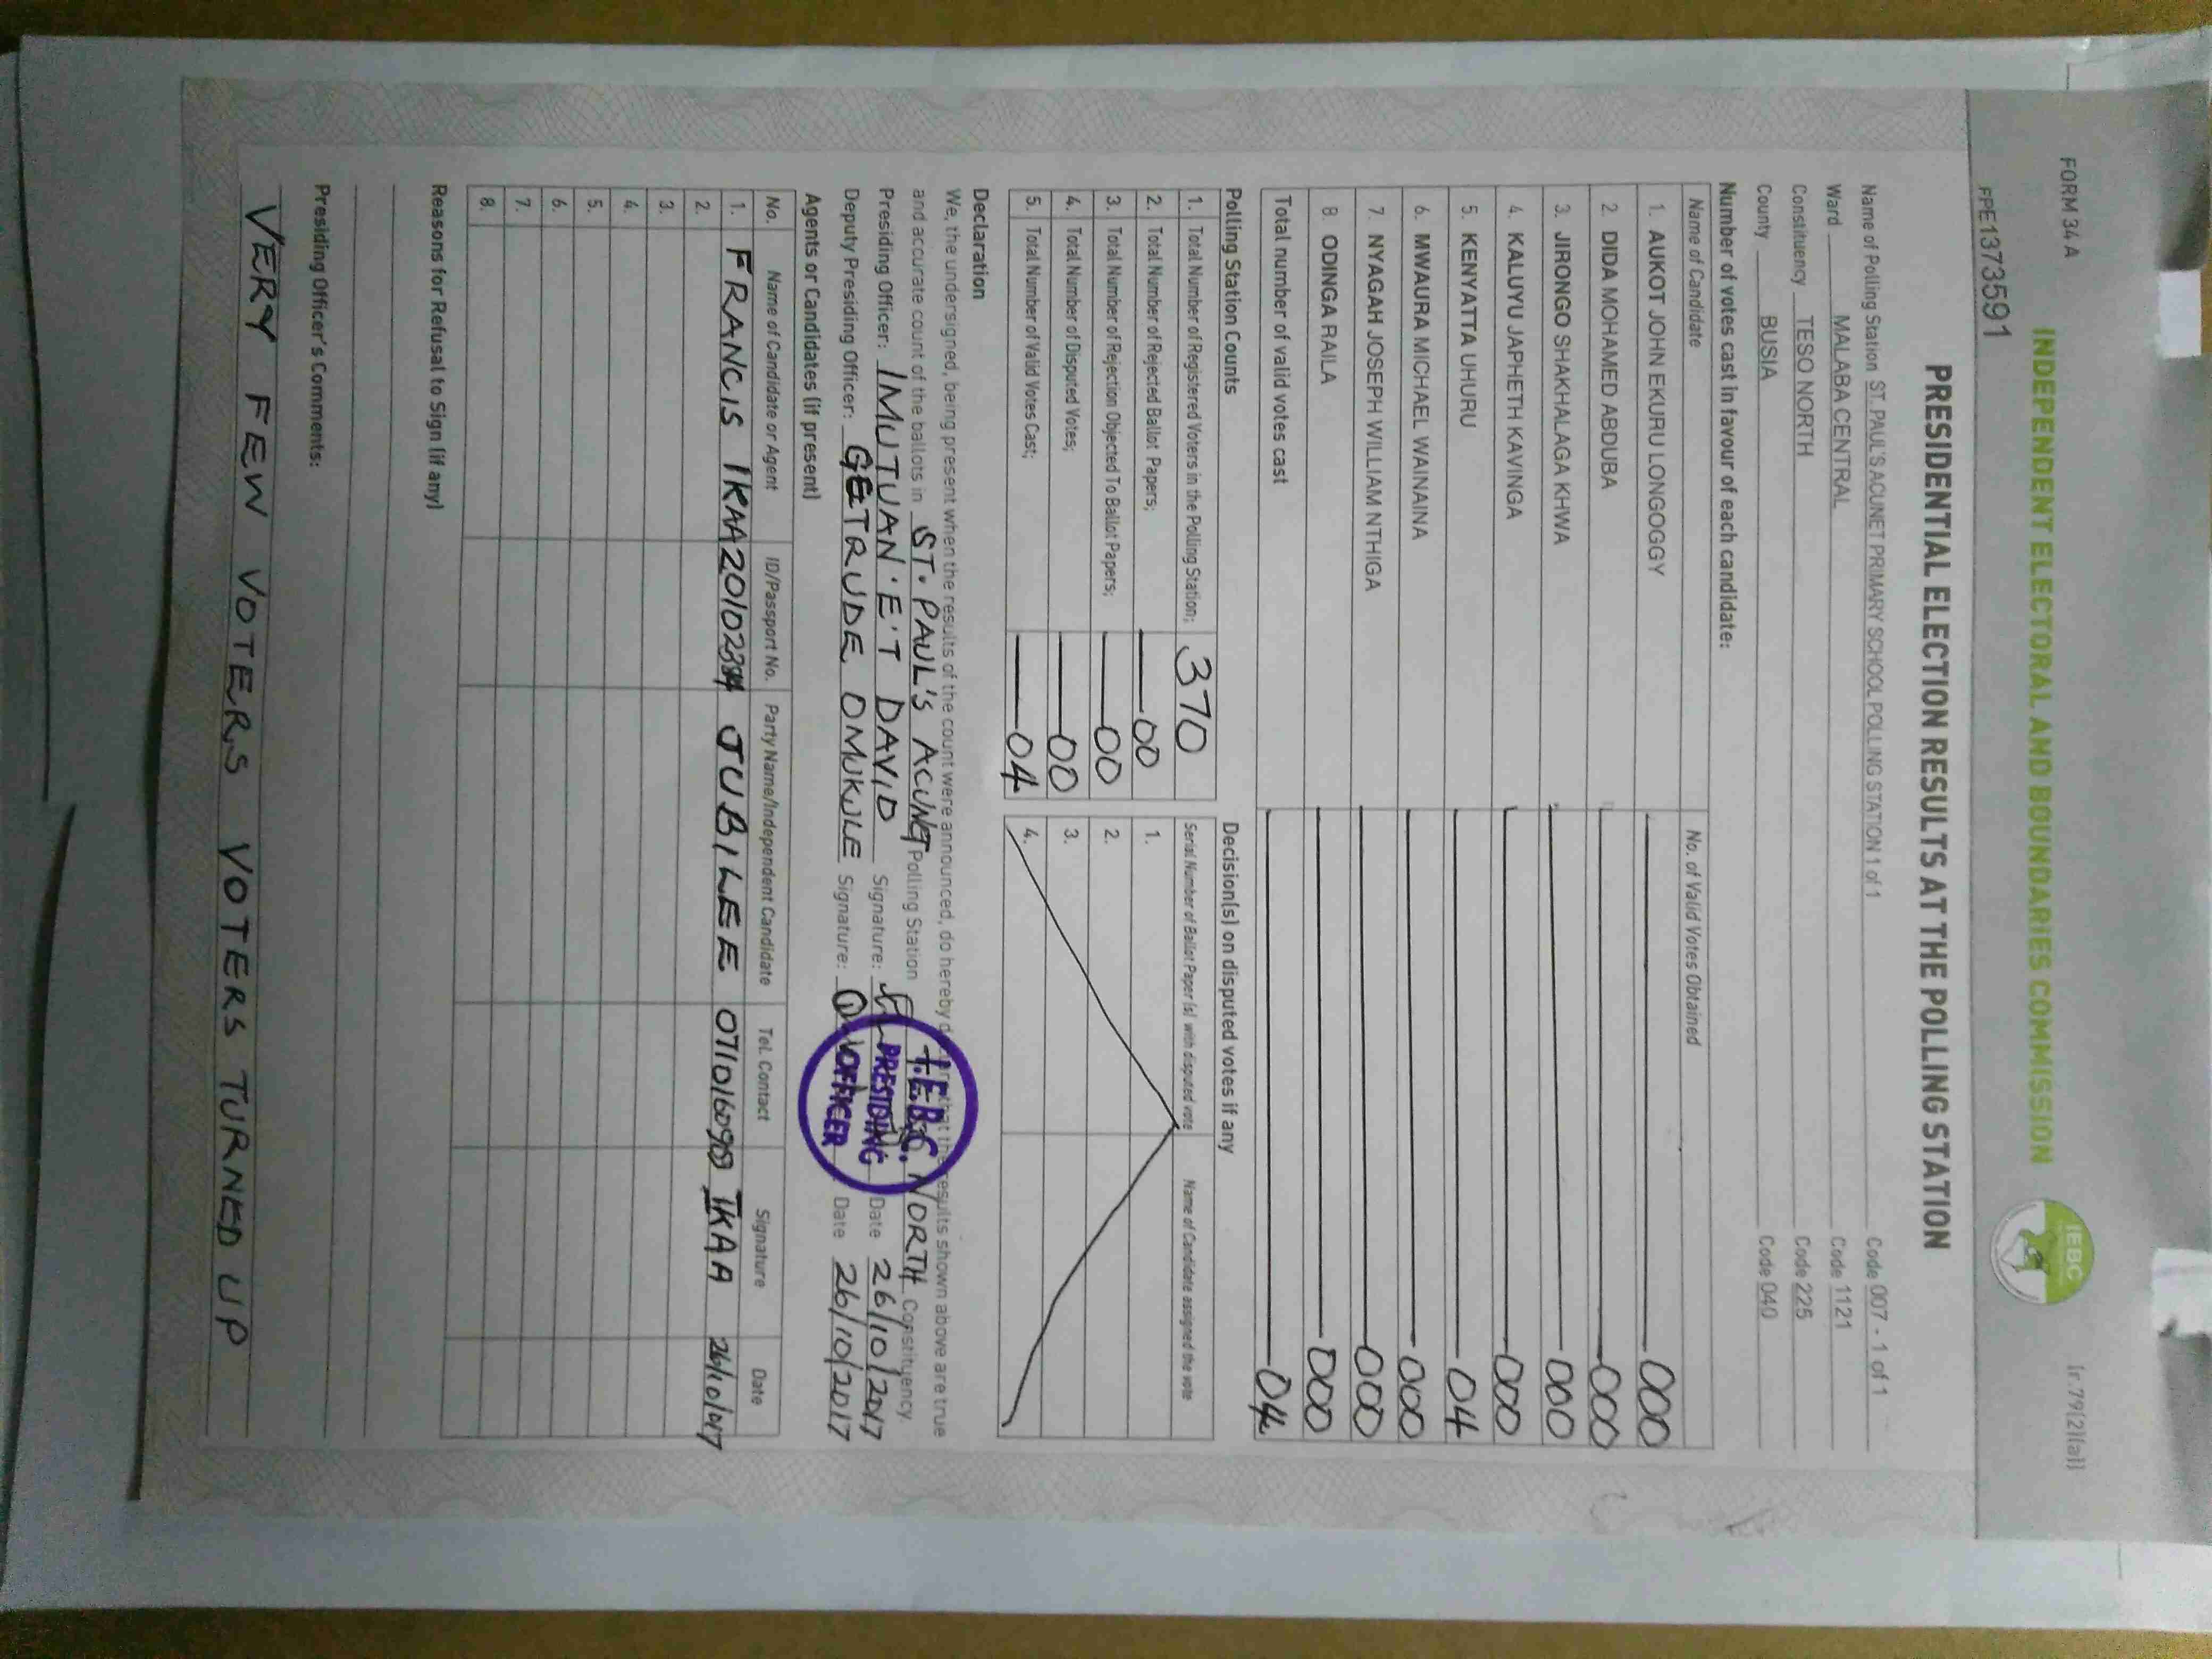 FORM 34 A
(r 79(2)(a))
INDEPENDENT ELECTORAL AND BOUNDARIES COMMISSION
IEBC
FPE1373591
PRESIDENTIAL ELECTION RESULTS AT THE POLLING STATION
Name of Polling Station ST. PAUL'S ACUNET PRIMARY SCHOOL POLLING STATION 1 of 1 Code 007 - 1 of 1
Ward MALABA CENTRAL Code 1121
Constituency TESO NORTH Code 225
County BUSIA Code 040
Number of votes cast in favour of each candidate:
Name of Candidate No. of Valid Votes Obtained
1. AUKOT JOHN EKURU LONGOGGY 000
2. DIDA MOHAMED ABDUBA 000
3. JIRONGO SHAKHALAGA KHWA 000
4. KALUYU JAPHETH KAVINGA 000
5. KENYATTA UHURU 04
6. MWAURA MICHAEL WAINAINA 000
7. NYAGAH JOSEPH WILLIAM NTHIGA 000
8. ODINGA RAILA 000
Total number of valid votes cast 04
Polling Station Counts
1. Total Number of Registered Voters in the Polling Station; 370
2. Total Number of Rejected Ballot Papers; 00
3. Total Number of Rejection Objected To Ballot Papers; 00
4. Total Number of Disputed Votes; 00
5. Total Number of Valid Votes Cast; 04
Decision(s) on disputed votes if any
Serial Number of Ballot Paper (s) with disputed vote Name of Candidate assigned the vote
1.
2.
3.
4.
Declaration
We, the undersigned, being present when the results of the count were announced, do hereby that the results shown above are true
and accurate count of the ballots in ST. PAUL'S ACUNET Polling Station NORTH Constituency.
Presiding Officer: IMUTUAN. E'T DAVID Signature: Date 26/10/2017
Deputy Presiding Officer: GETRUDE OMUKULE Signature: Date 26/10/2017
I.E.B.C.
PRESIDING
OFFICER
Agents or Candidates (if present)
No. Name of Candidate or Agent ID/Passport No. Party Name/Independent Candidate Tel. Contact Signature Date
1. FRANCIS IKAA JUBILEE IKAA
2.
3.
4.
5.
6.
7.
8.
Reasons for Refusal to Sign (if any)
Presiding Officer's Comments:
VERY FEW VOTERS VOTERS TURNED UP